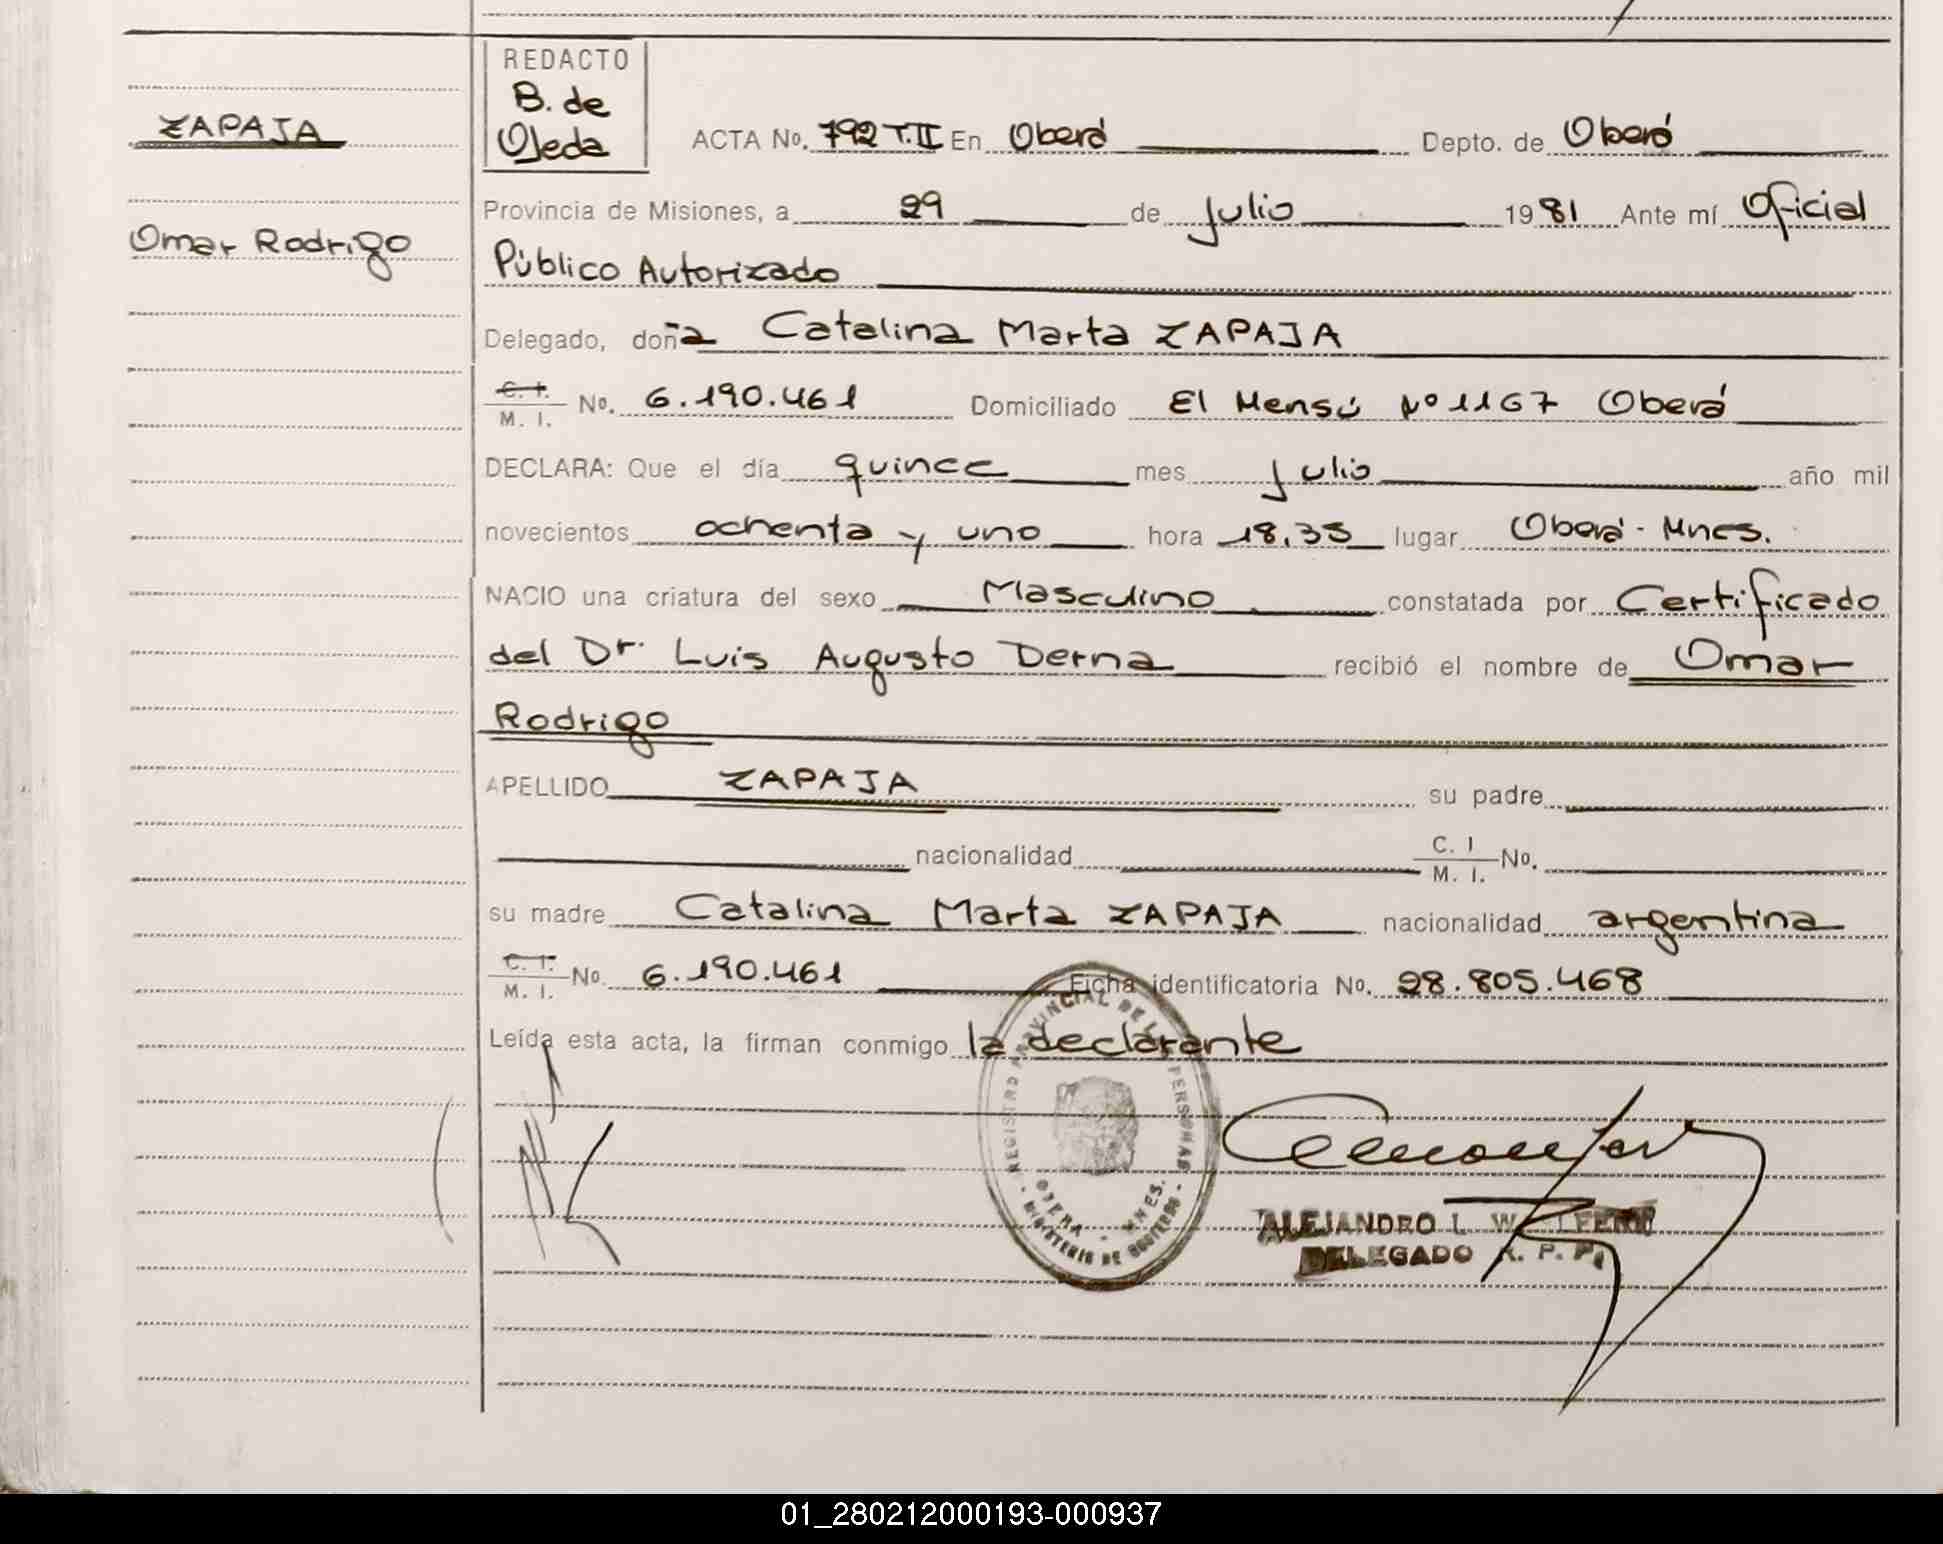 REDACTO
B. de
Ojeda
ZAPAJA
Omar Rodrigo
ACTA No. 792 T.II En Oberá Depto. de Oberá
Provincia de Misiones, a 29 de julio 1981 Ante mí Oficial
Público Autorizado
Delegado, doña Catalina Marta ZAPAJA
C. I. M. I. No. 6.190.461 Domiciliado El Mensú Nº 1167 Oberá
DECLARA: Que el día quince mes julio año mil
novecientos ochenta y uno hora 18,35 lugar Oberá - Mnes.
NACIO una criatura del sexo Masculino constatada por Certificado
del Dr. Luis Augusto Derna recibió el nombre de Omar
Rodrigo
APELLIDO ZAPAJA su padre
nacionalidad C. I M. I. No.
su madre Catalina Marta ZAPAJA nacionalidad argentina
C. I. M. I. No. 6.190.461 Ficha identificatoria No. 28.805.468
Leída esta acta, la firman conmigo la declarante
REGISTRO PROVINCIAL DE LAS PERSONAS
OBERA - MNES.
- MINISTERIO DE GOBIERNO -
ALEJANDRO L.
DELEGADO R. P. P.
01_280212000193-000937